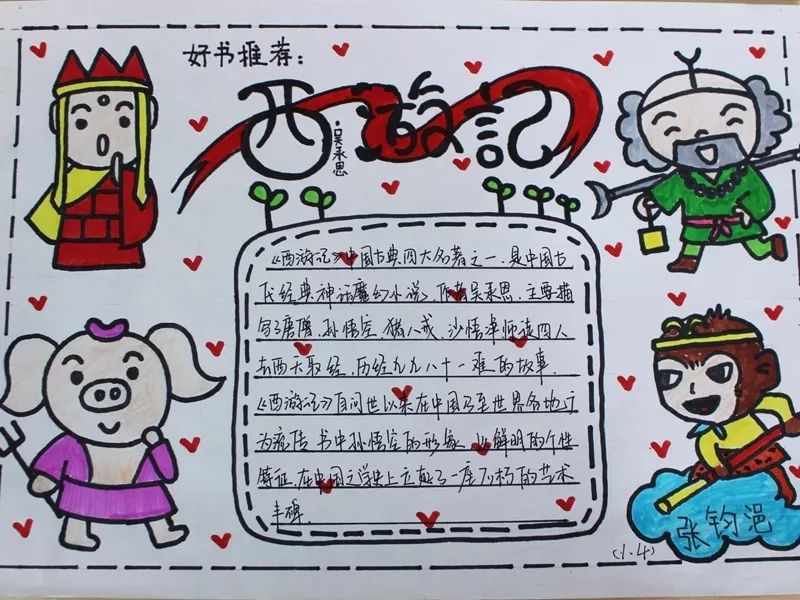 好书推荐：
西游記
·吴承恩
《西游记》中国古典四大名著之一，是中国古
代经典神话魔幻小说，作者吴承恩，主要描
写了唐僧、孙悟空、猪八戒、沙悟净师徒四人
去西天取经，历经九九八十一难的故事．
《西游记》自问世以来在中国乃至世界各地广
为流传 书中孙悟空的形象 以鲜明的个性
特征，在中国文学史上立起了一座不朽的艺术
丰碑．
张钧浥
(1.4)